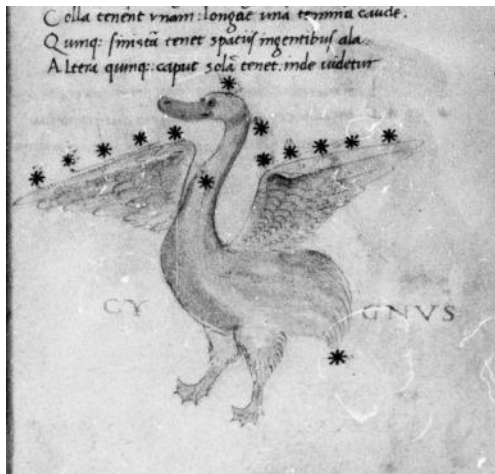 Colla tenent vnam: longae una termina caude.
Quinq: sinistã tenet spatiis ingentibus ala.
Altera quinq: caput solã tenet: inde uidetur
CY GNVS